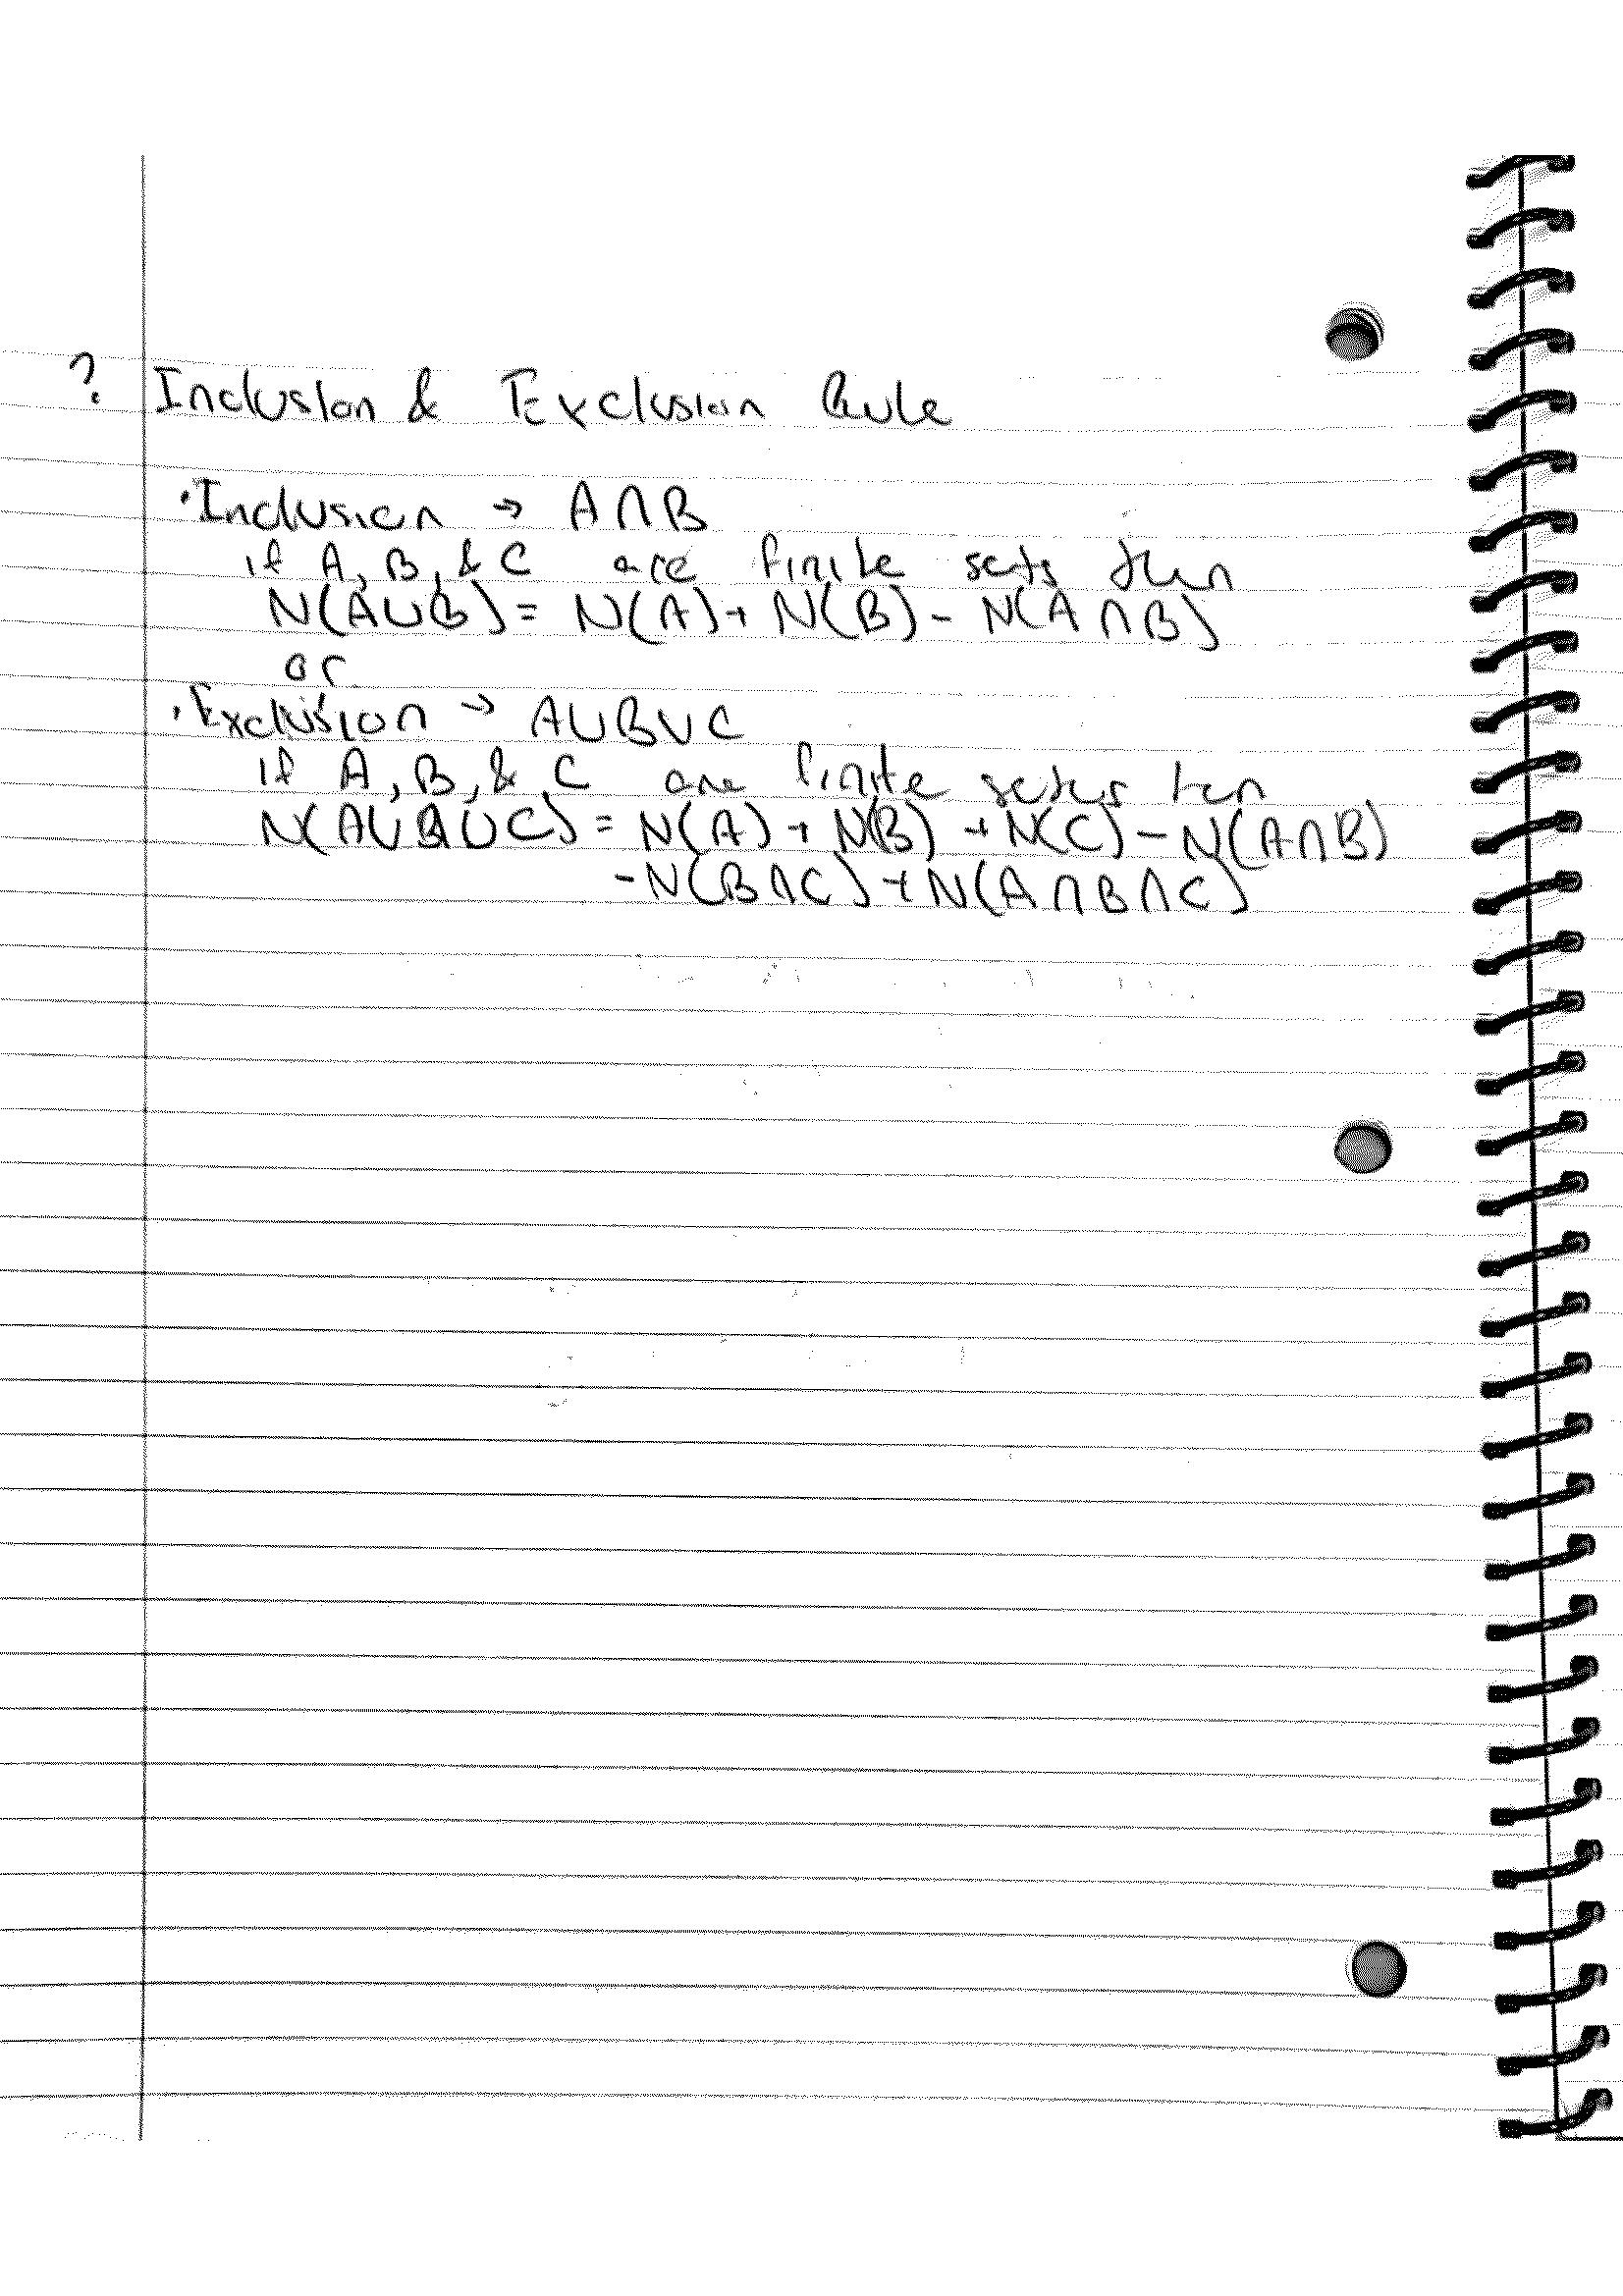 ? Inclusion & Exclusion Rule
· Inclusion → A∩B
if A, B, & C are finite sets then
N(A∪B) = N(A) + N(B) - N(A∩B)
or
· Exclusion → A∪B∪C
if A, B, & C are finite setes ten
N(A∪B∪C) = N(A) + N(B) + N(C) - N(A∩B)
- N(B∩C) + N(A∩B∩C)